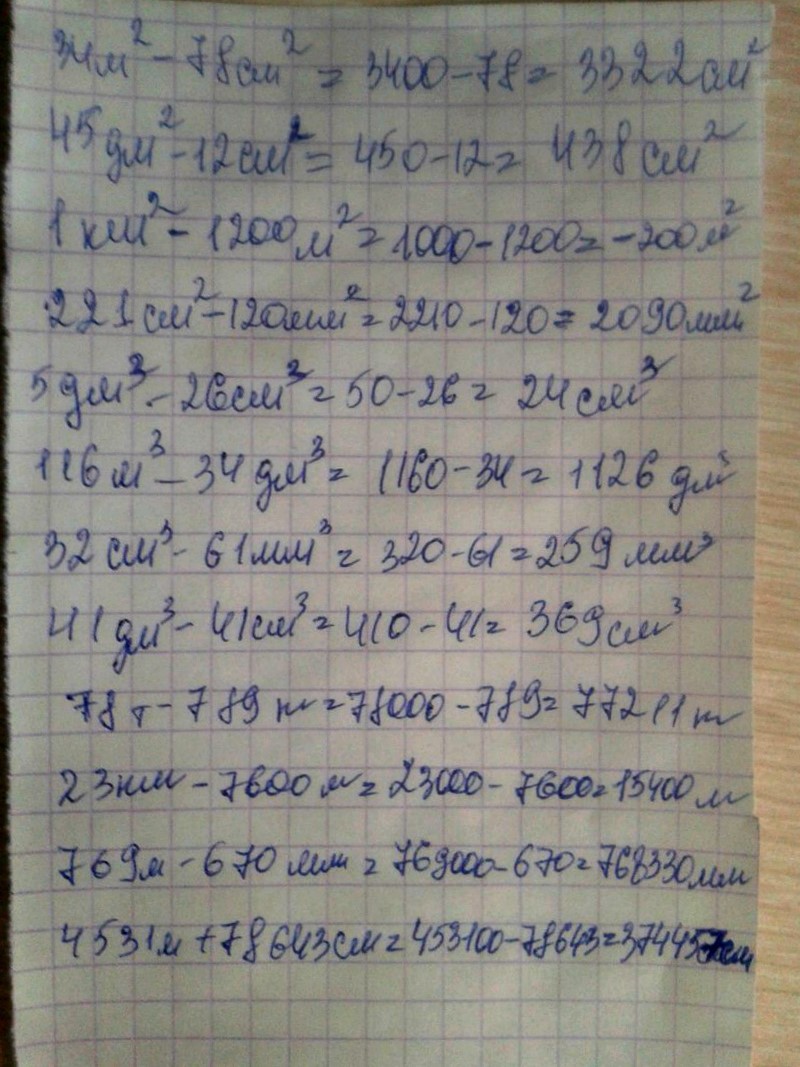 34м² - 78см² = 3400 - 78 = 3322см²
45дм² - 12см² = 450 - 12 = 438см²
1км² - 1200м² = 1000 - 1200 = -200м²
221см² - 120мм² = 2210 - 120 = 2090мм²
5дм³ - 26см³ = 50 - 26 = 24см³
116м³ - 34дм³ = 1160 - 34 = 1126дм³
32см³ - 61мм³ = 320 - 61 = 259мм³
41дм³ - 41см³ = 410 - 41 = 369см³
78т - 789кг = 78000 - 789 = 77211кг
23км - 7600м = 23000 - 7600 = 15400м
769м - 670мм = 769000 - 670 = 768330мм
4531м + 78643см = 453100 - 78643 = 374457см